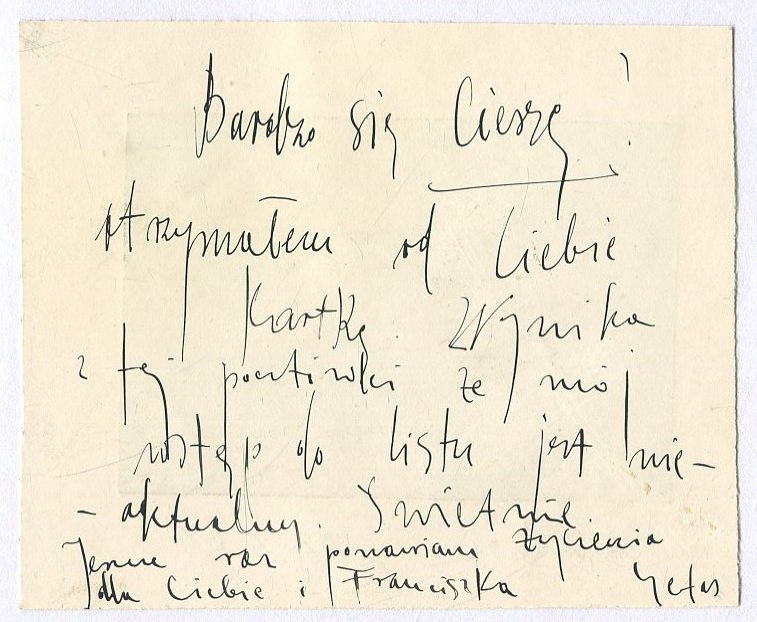 Bardzo się Cieszę!
otrzymałem od Ciebie
kartkę. Wynika
z tej pocztówki że mój
wstęp do listu jest nie-
-aktualny. Świetnie.
Jeszcze raz ponawiam życzenia
dla Ciebie i Franciszka